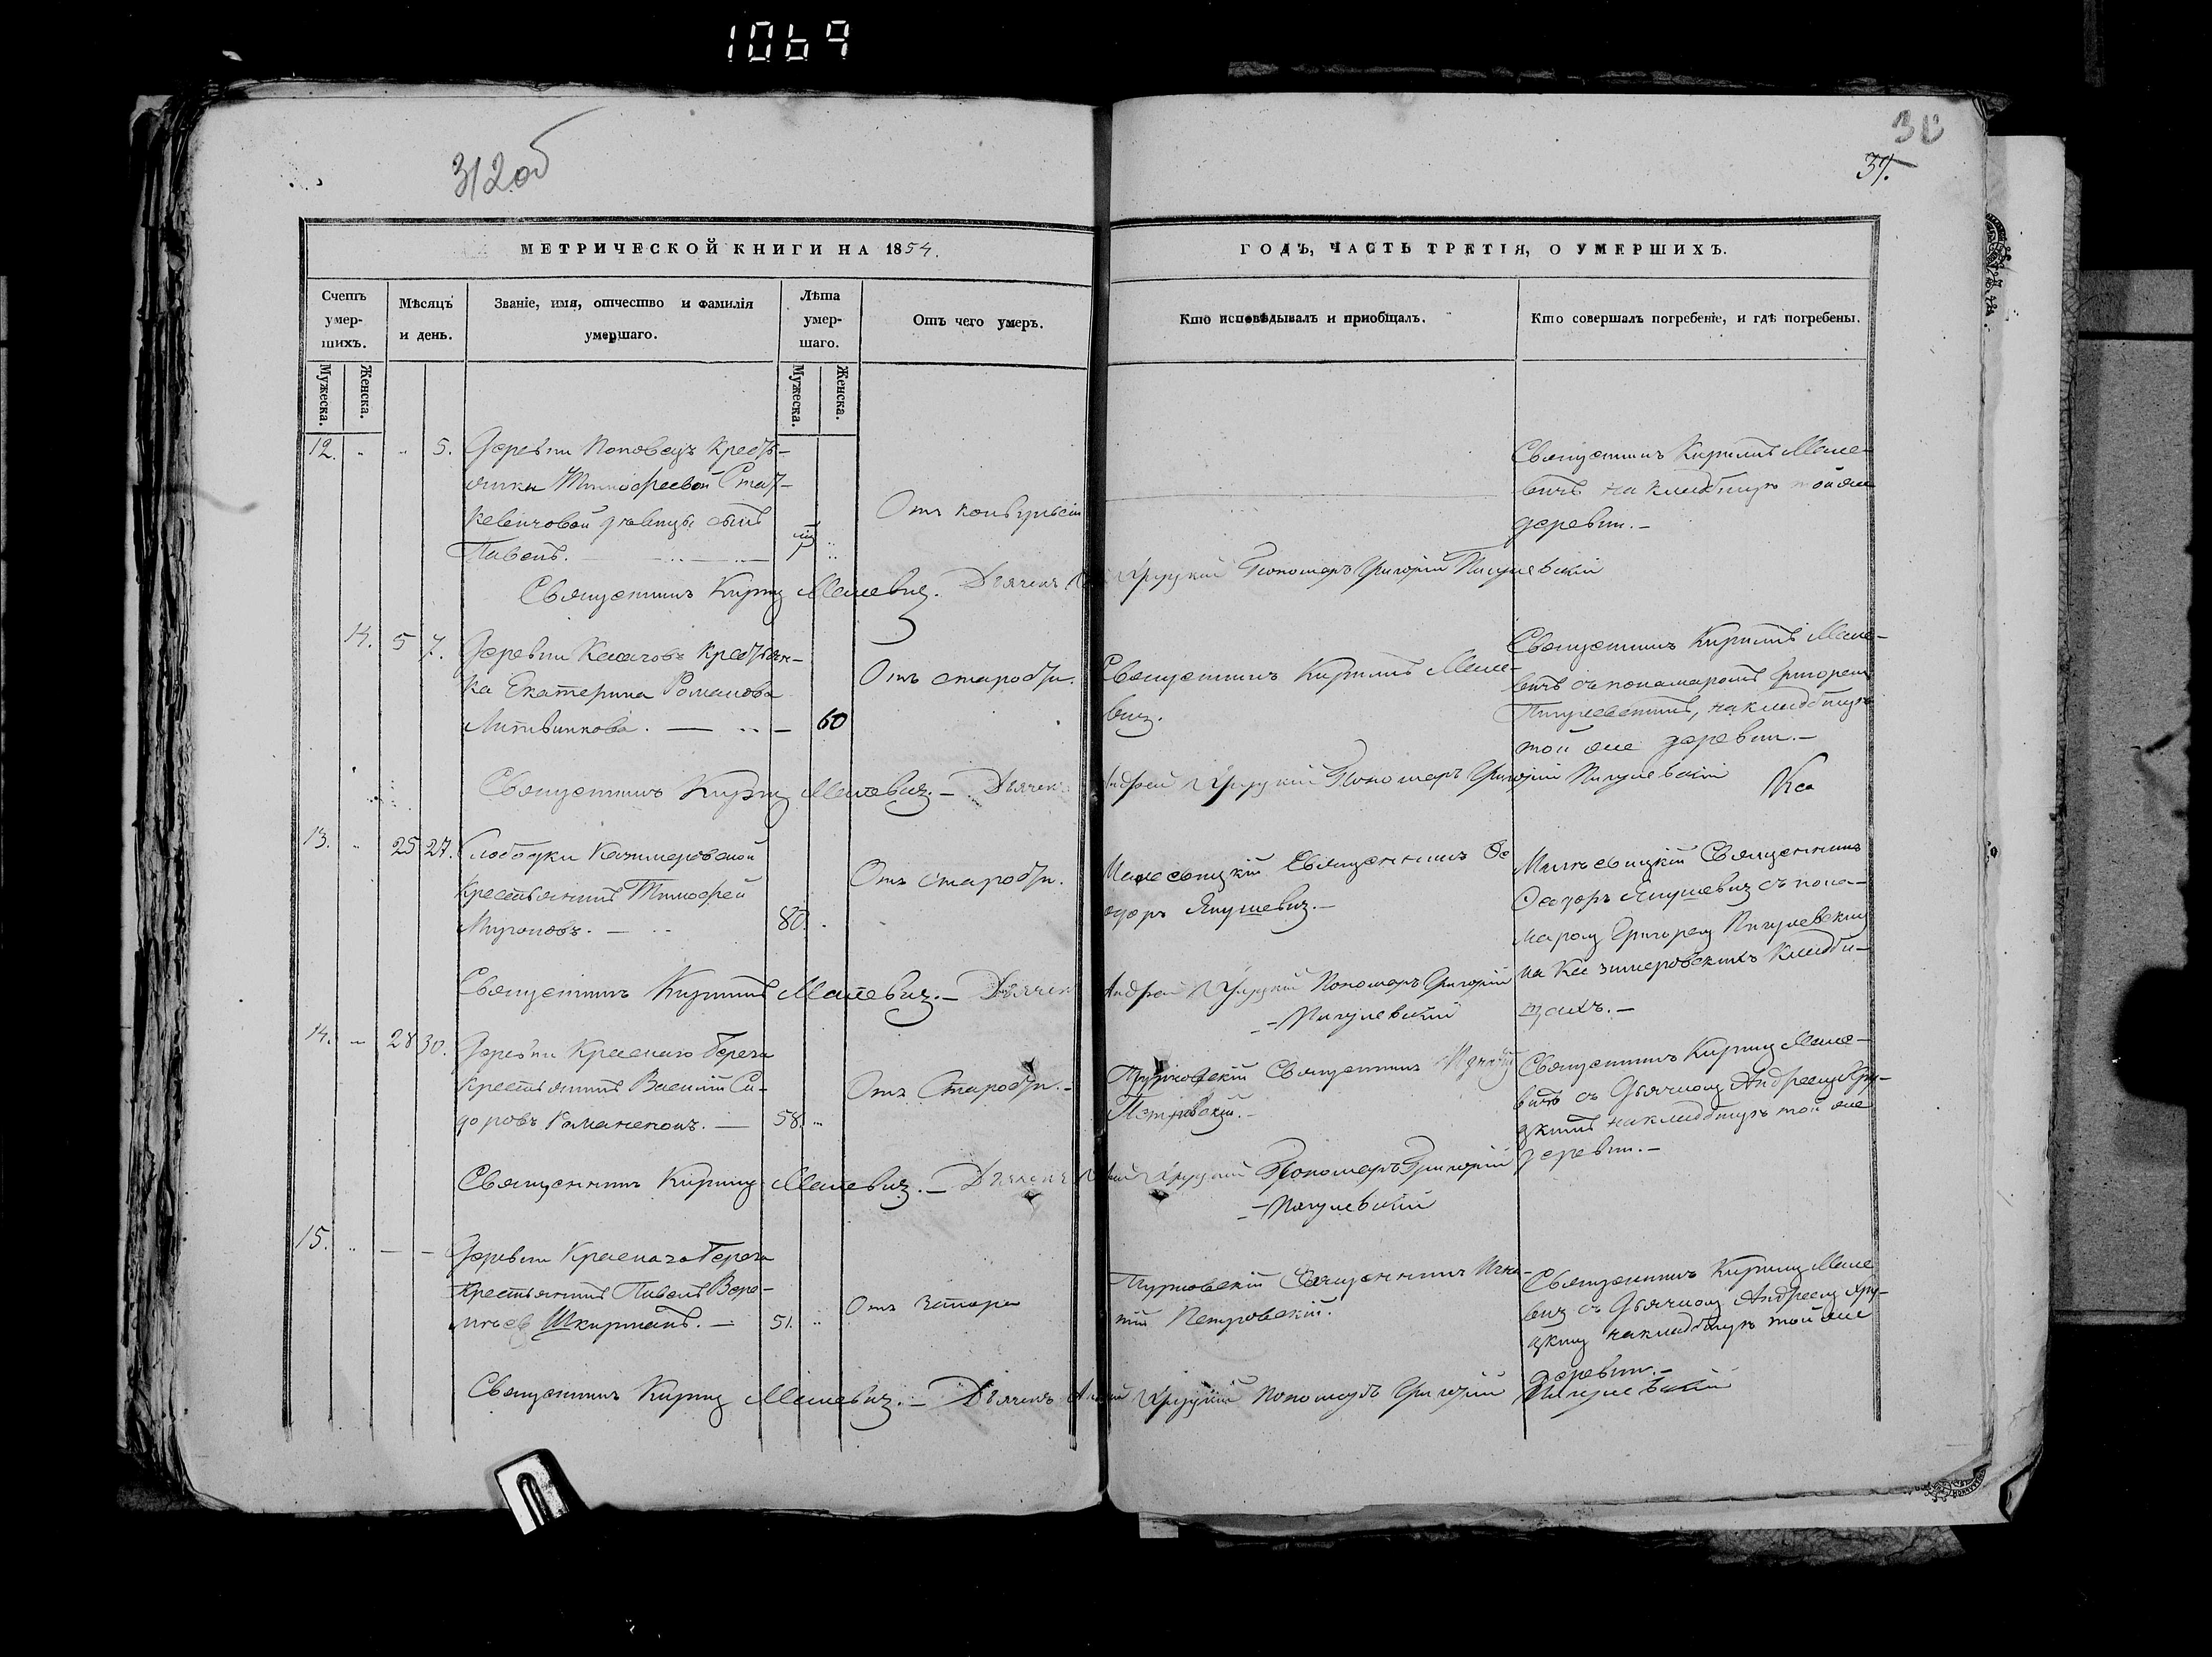 1069
312об
30
39.
МЕТРИЧЕСКОЙ КНИГИ НА 1854.
ГОДЪ, ЧАСТЬ ТРЕТІЯ, О УМЕРШИХЪ.
Счетъ умер-шихъ.
Мѣсяцъ и день.
Званіе, имя, отчество и фамилія умершаго.
Лѣта умер-шаго.
Отъ чего умеръ.
Кто исповѣдывалъ и пріобщалъ.
Кто совершалъ погребеніе, и гдѣ погребены.
Мужеска.
Женска.
Мужеска.
Женска.
12. 5.
Деревни Поповецъ кресть-
янки Тимофеевой
сынъ
Павелъ.
Отъ конвульсіи
Священникъ Кирилъ Мале-
вичъ на кладбищѣ той же
деревни.-
Священникъ Кирилъ Малевичъ. Дьячекъ Хруцкій Пономаръ Григорій Пигулевскій
14. 5 7.
Деревни крестьян-
ка Екатерина Романова
Литвинкова. 60
Отъ старости.
Священникъ Кирилъ Мале-
вичъ.
Священникъ Кирилъ Мале-
вичъ съ понамаромъ Григоремъ
Пигулевскимъ, на кладбищѣ
той же деревни.-
Священникъ Кирилъ Малевичъ.- Дьячекъ Андрей Хруцкій Пономаръ Григорій Пигулевскій
13. 25 27.
Слободки Казимеровской
крестьянинъ Тимофей
Мироновъ. 80.
Отъ старости.
Священникъ Ѳе
одоръ Янушевичъ.-
Священникъ
Ѳеодоръ Янушевичъ съ пона-
маромъ Григоремъ Пигулевскимъ
на Казимеровскихъ кладби-
щахъ.-
Священникъ Кирилъ Малевичъ.- Дьячекъ Андрей Хруцкій Пономаръ Григорій
-Пигулевскій
14. 28 30.
Деревни Краснаго Берега
крестьянинъ Василій Си-
доровъ Романенокъ.- 58.
Отъ Старости.-
Священникъ Игнатій
Петровскій.-
Священникъ Кирилъ Мале-
вичъ съ Дьячкомъ Андреемъ Хру-
цкимъ на кладбищѣ той же
деревни.-
Священникъ Кирилъ Малевичъ.- Дьячекъ Андрей Хруцкій Пономаръ Григорій
-Пигулевскій
15.
Деревни Краснаго Берега
Крестьянинъ Павелъ
Шкирманъ.- 51.
Отъ
Священникъ Игна-
тій Петровскій.
Священникъ Кирилъ Мале
вичъ съ Дьячкомъ Андреемъ Хру-
цкимъ на кладбищѣ той же
деревни.-
Священникъ Кирилъ Малевичъ.- Дьячекъ Андрей Хруцкій Пономаръ Григорій Пигулевскій